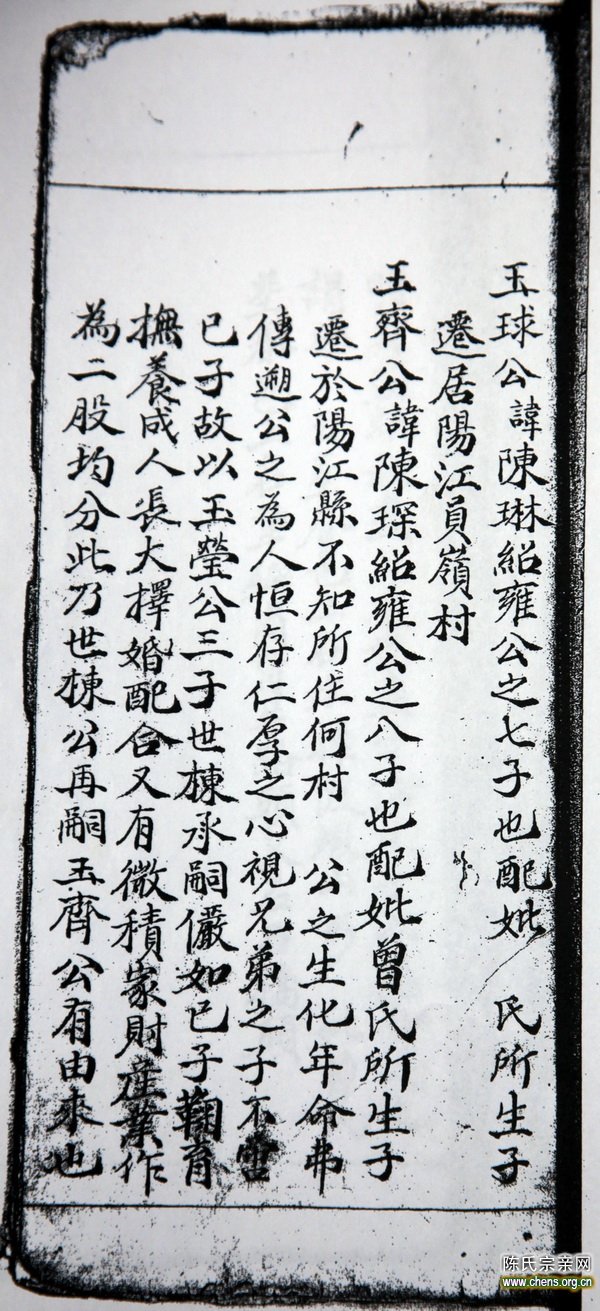 玉球公諱陳琳紹雍公之七子也配妣 氏所生子
遷居陽江員嶺村
玉齊公諱陳琛紹雍公之八子也配妣曾氏所生子
遷於陽江縣不知所住何村 公之生化年命弗
傳遡公之為人恒存仁厚之心視兄弟之子不啻
已子故以玉瑩公三子世棟承嗣儼如已子鞠育
撫養成人長大擇婚配合又有微積家財產業作
為二股均分此乃世棟公再嗣玉齊公有由來也
陈氏宗亲网
www.chens.org.cn